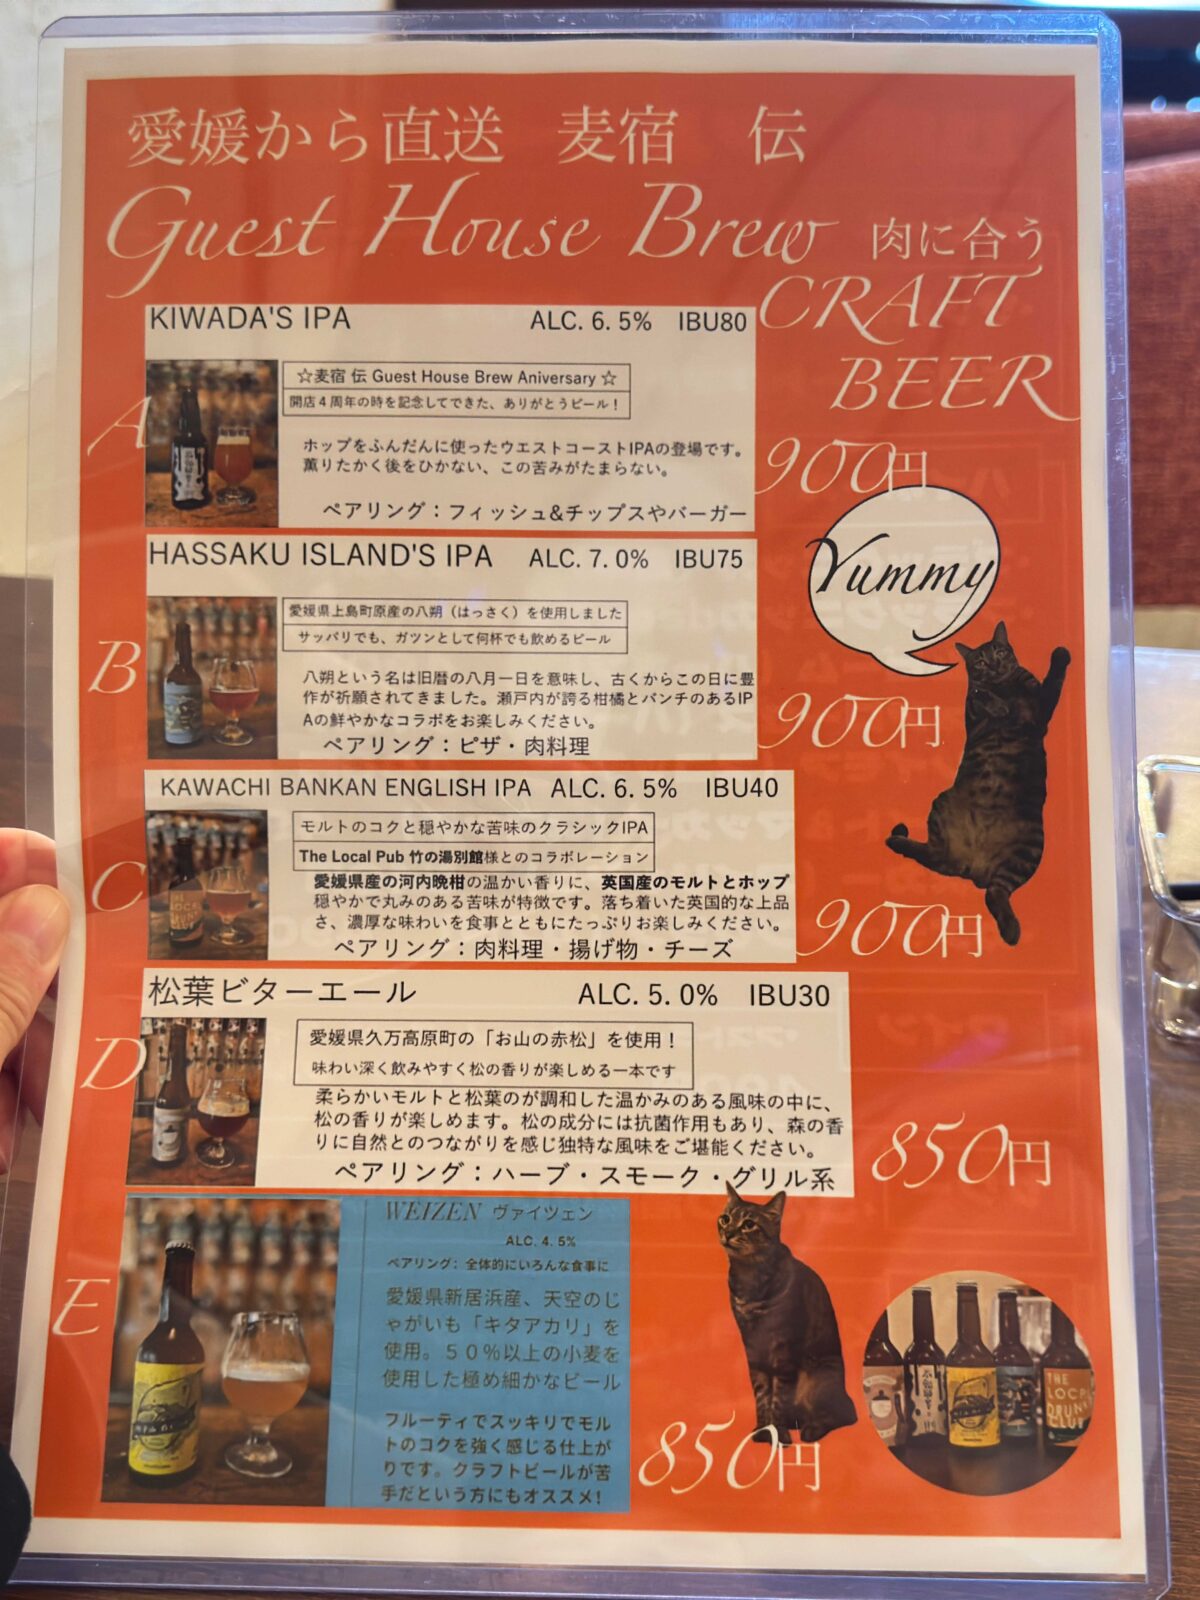 愛媛から直送 麦宿 伝
Guest House Brew 肉に合う
CRAFT
BEER
A
KIWADA'S IPA ALC. 6. 5% IBU80
☆麦宿 伝 Guest House Brew Aniversary ☆
開店４周年の時を記念してできた、ありがとうビール！
ホップをふんだんに使ったウエストコーストIPAの登場です。
薫りたかく後をひかない、この苦みがたまらない。
ペアリング：フィッシュ&チップスやバーガー
900円
Yummy
B
HASSAKU ISLAND'S IPA ALC. 7. 0% IBU75
愛媛県上島町原産の八朔（はっさく）を使用しました
サッパリでも、ガツンとして何杯でも飲めるビール
八朔という名は旧暦の八月一日を意味し、古くからこの日に豊
作が祈願されてきました。瀬戸内が誇る柑橘とパンチのあるIP
Aの鮮やかなコラボをお楽しみください。
ペアリング：ピザ・肉料理
900円
C
KAWACHI BANKAN ENGLISH IPA ALC. 6. 5% IBU40
モルトのコクと穏やかな苦味のクラシックIPA
The Local Pub 竹の湯別館様とのコラボレーション
愛媛県産の河内晩柑の温かい香りに、英国産のモルトとホップ
穏やかで丸みのある苦味が特徴です。落ち着いた英国的な上品
さ、濃厚な味わいを食事とともにたっぷりお楽しみください。
ペアリング：肉料理・揚げ物・チーズ
900円
D
松葉ビターエール ALC. 5. 0% IBU30
愛媛県久万高原町の「お山の赤松」を使用！
味わい深く飲みやすく松の香りが楽しめる一本です
柔らかいモルトと松葉のが調和した温かみのある風味の中に、
松の香りが楽しめます。松の成分には抗菌作用もあり、森の香
りに自然とのつながりを感じ独特な風味をご堪能ください。
ペアリング：ハーブ・スモーク・グリル系
850円
E
WEIZEN ヴァイツェン
ALC. 4. 5%
ペアリング：全体的にいろんな食事に
愛媛県新居浜産、天空のじ
ゃがいも「キタアカリ」を
使用。５０％以上の小麦を
使用した極め細かなビール
フルーティでスッキリでモル
トのコクを強く感じる仕上が
りです。クラフトビールが苦
手だという方にもオススメ！
850円
THE
LOCAL
DRUNK
CLUB